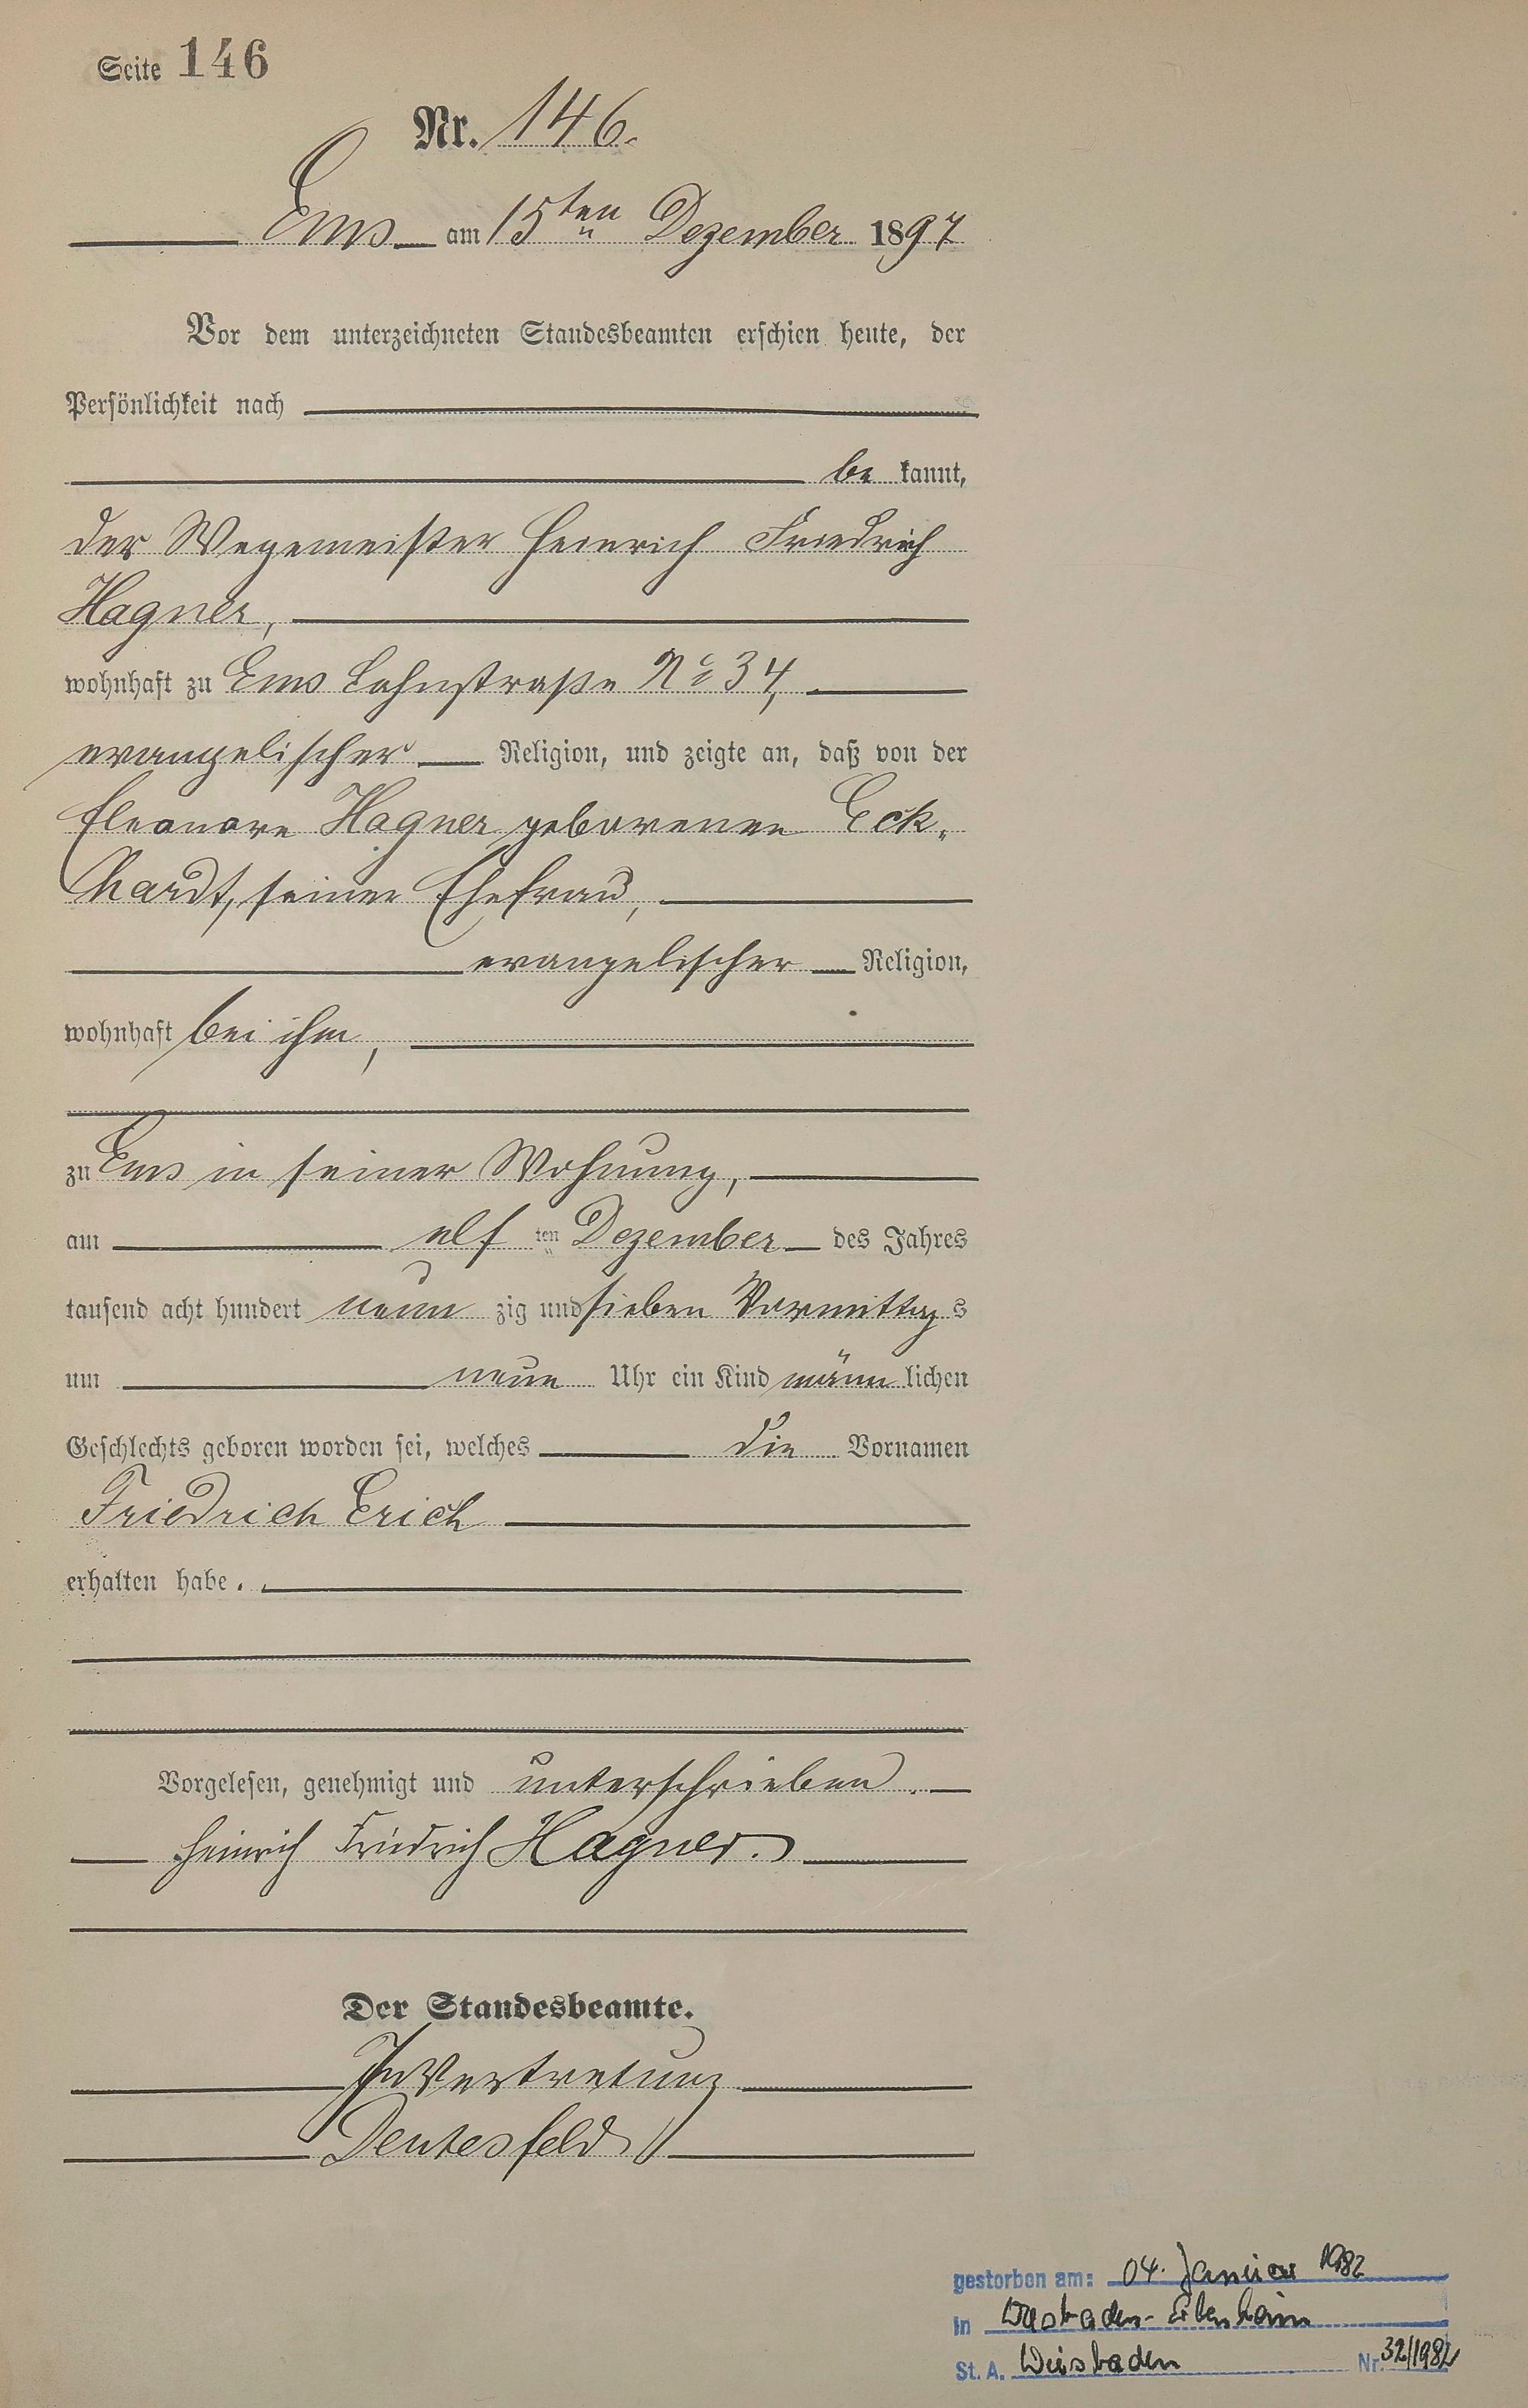 Seite 146
Nr. 146.
Ems am 15ten Dezember 1897
Vor dem unterzeichneten Standesbeamten erschien heute, der
Persönlichkeit nach
be kannt,
der Wegemeister Heinrich Friedrich
Hagner,
wohnhaft zu Ems Lahnstraße No 34,
evangelischer Religion, und zeigte an, daß von der
Eleonore Hagner geborenen Eck-
hardt, seiner Ehefrau,
evangelischer Religion,
wohnhaft bei ihm,
zu Ems in seiner Wohnung,
am elf ten Dezember des Jahres
tausend acht hundert neun zig und sieben Vormittag s
um neun Uhr ein Kind männ lichen
Geschlechts geboren worden sei, welches die Vornamen
Friedrich Erich
erhalten habe.
Vorgelesen, genehmigt und unterschrieben.
Heinrich Friedrich Hagner.
Der Standesbeamte.
In Vertretung
gestorben am: 04. Januar 1982
in Wiesbaden-Erbenheim
St. A. Wiesbaden Nr. 32/1982